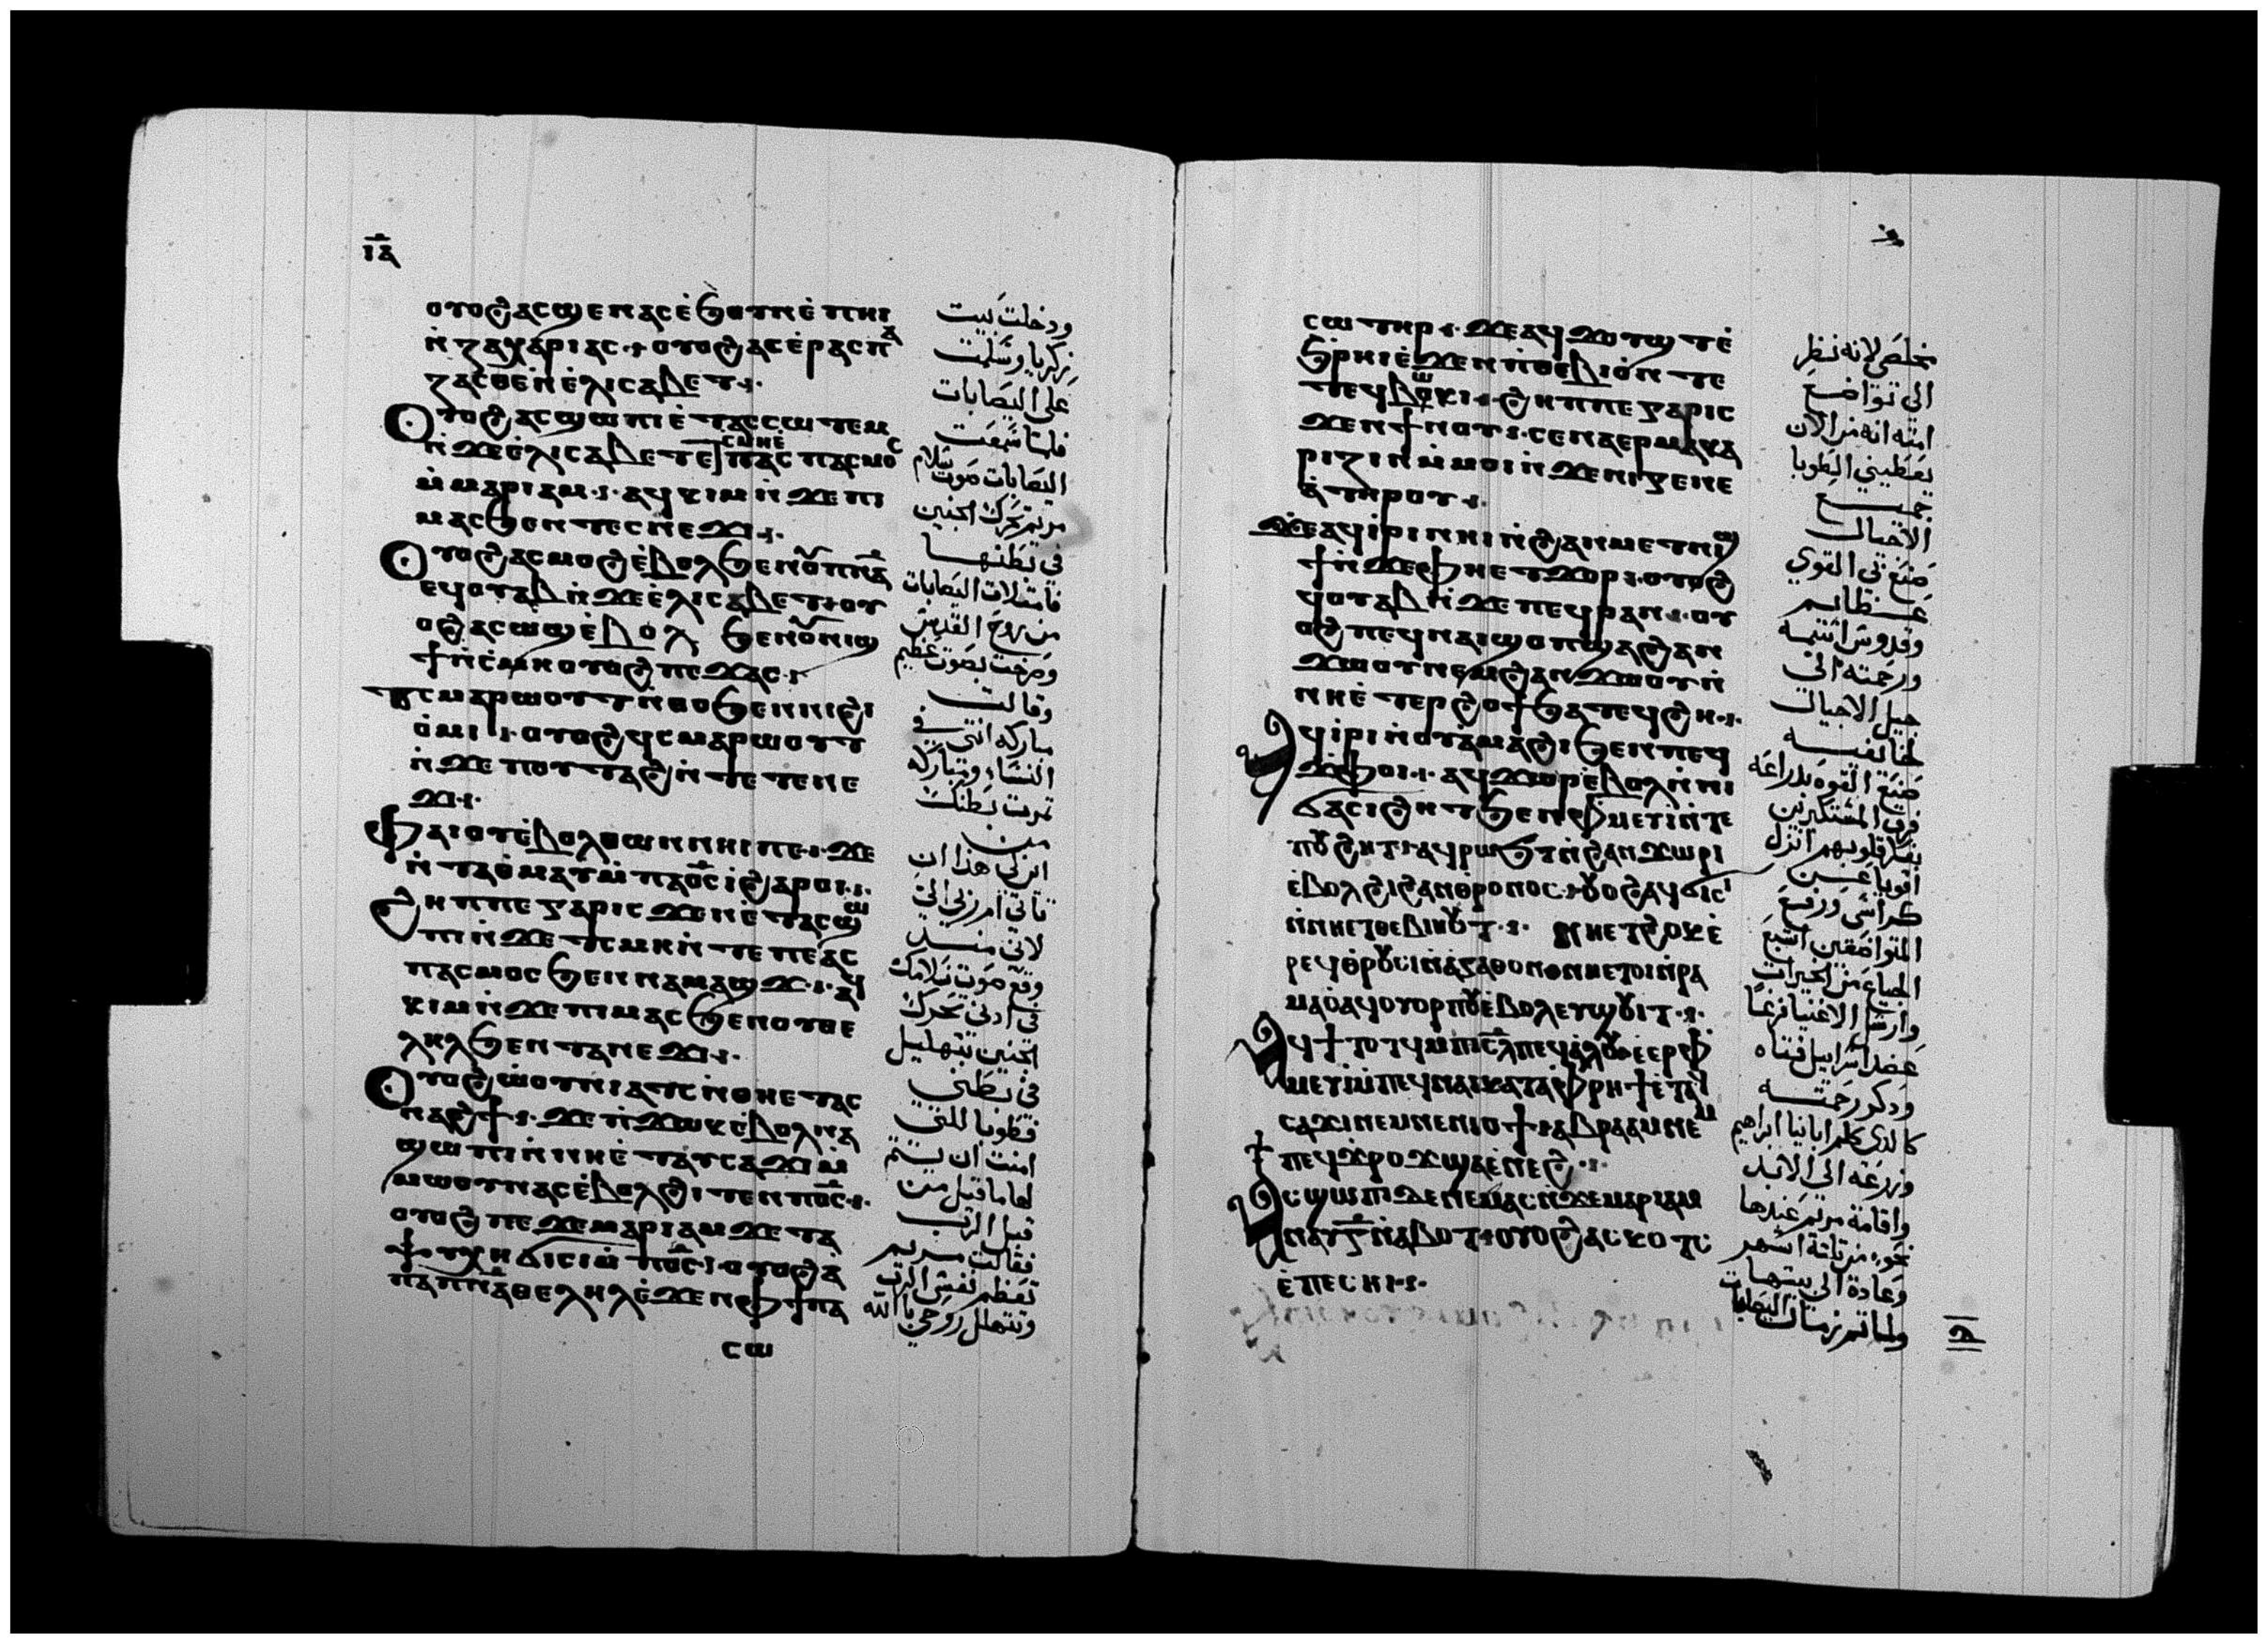 ⲓⲁ̅
ⲟⲩⲟϩ ⲁⲥϣⲉ ⲛⲁⲥ ⲉ̇ϧⲟⲩⲛ ⲉ̇ ⲡⲏⲓ
ⲛ̇ⲍⲁⲭⲁⲣⲓⲁⲥ ⲟⲩⲟϩ ⲁⲥⲉ̇ⲣⲁⲥⲡⲁ
ⲍⲁⲥⲑⲉ ⲛ̇ⲉ̇ⲗⲓⲥⲁⲃⲉⲧ
Ⲟⲩⲟϩ ⲁⲥϣⲱⲡⲓ ⲉ̇ⲧⲁⲥⲥⲱⲧⲉⲙ
ⲛ̇ϫⲉ ⲉ̇ⲗⲓⲥⲁⲃⲉⲧ ⲉⲧⲥⲙⲏ ⲉ̇ⲡⲁⲥⲡⲁⲥⲙⲟⲥ
ⲙ̇ⲙⲁⲣⲓⲁⲙ ⲁϥⲕⲓⲙ ⲛ̇ϫⲉ ⲡⲓ
ⲙⲁⲥ ϧⲉⲛ ⲧⲉⲥⲛⲉϫⲓ
Ⲟⲩⲟϩ ⲁⲥⲙⲟϩ ⲉ̇ⲃⲟⲗ ϧⲉⲛ ⲟⲩⲡⲛ̅ⲁ
ⲉϥⲟⲩⲁⲃ ⲛ̇ϫⲉ ⲉ̇ⲗⲓⲥⲁⲃⲉⲧ ⲟⲩ
ⲟϩ ⲁⲥⲱϣ ⲉ̇ⲃⲟⲗ ϧⲉⲛ ⲟⲩⲛⲓϣ
ϯ ⲛ̇ⲥ̇ⲙⲏ ⲟⲩⲟϩ ⲡⲉϫⲁⲥ
ⲧⲉⲥⲙⲁⲣⲱⲟⲩⲧ ⲛ̇ⲑⲟ ϧⲉⲛ ⲛⲓϩⲓ
ⲟ̇ⲙⲓ ⲟⲩⲟϩ ϥⲥⲙⲁⲣⲱⲟⲩⲧ
ⲛ̇ϫⲉ ⲡⲟⲩⲧⲁϩ ⲛ̇ⲧⲉ ⲧⲉⲛⲉ
ϫⲓ
Ⲫⲁⲓ ⲟⲩⲉ̇ⲃⲟⲗ ⲑⲱⲛ ⲛⲏⲓ ⲡⲉ ϫⲉ
ⲛ̇ⲧⲁ ⲟ̇ⲙⲁⲩ ⲙ̇ⲡⲁⲟ̅ⲥ̅ ⲓ̇ ϩⲁⲣⲟⲓ
Ϩⲏⲡⲡⲉ ⲅⲁⲣ ⲓⲥϫⲉⲛ ⲉ̇ⲧⲁⲥϣⲱ
ⲡⲓ ⲛ̇ϫⲉ ⲧⲥⲙⲏ ⲛ̇ⲧⲉ ⲡⲉⲁⲥ
ⲡⲁⲥⲙⲟⲥ ϧⲉⲛ ⲛⲁⲙⲁϣϫ ⲁϥ
ⲕⲓⲙ ⲛ̇ϫⲉ ⲡⲓⲙⲁⲥ ϧⲉⲛ ⲟⲩⲑⲉ
ⲗⲏⲗ ϧⲉⲛ ⲧⲁⲛⲉϫⲓ
Ⲟⲩⲟϩ ⲱ̇ⲟⲩⲛⲓⲁⲧⲥ ⲛ̇ⲑⲏ ⲉ̇ⲧⲁⲥ
ⲛⲁϩϯ ϫⲉ ⲡ̇ϫⲱⲕ ⲉ̇ⲃⲟⲗ ⲛⲁ
ϣⲱⲡⲓ ⲛ̇ⲛⲏ ⲉ̇ⲧⲁⲩⲥⲁϫⲓ ⲙ̇
ⲙⲱⲟⲩ ⲛⲁⲥ ⲉ̇ⲃⲟⲗ ϩⲓⲧⲉⲛ ⲡⲟ̅ⲥ̅
ⲟⲩⲟϩ ⲡⲉϫⲉ ⲙⲁⲣⲓⲁⲙ ϫⲉ ⲧⲁ
ⲯⲩⲭⲏ ϭⲓⲥⲓ ⲙ̇ⲡⲟ̅ⲥ̅ ⲟⲩⲟϩ ⲁ
ⲡⲁⲡⲛ̅ⲁ̅ ⲑⲉⲗⲏⲗ ⲉ̇ϫⲉⲛ ⲫϯ ⲡⲁ
ⲥⲱ
ودخلت بيت
زكريا وسلمت
على اليصابات
فلما سمعت
اليصابات صوت سلام
مريم تحرك الجنين
في بطنها
فامتلات اليصابات
من روح القدس
وصرخت بصوت عظيم
وقالت
مباركه انتي في
النساء ومباركه
ثمرت بطنك
من
اين لي هذا ان
تاتي ام ربي الي
لاني منذ
وقع صوت سلامك
في ادني تحرك
الجنين بتهليل
في بطني
فطوبا للتي
امنت ان يتم
لها ما قيل من
قبل الرب
فقالت مريم
تعظم نفسي الرب
وتتهلل روحي بالله
ⲥⲱⲧⲏⲣ ϫⲉ ⲁϥϫⲟⲩϣⲧ ⲉ̇
ϧ̇ⲣⲏⲓ ⲉ̇ϫⲉⲛ ⲡ̇ⲑⲉⲃⲓⲟ̇ ⲛ̇ⲧⲉ
ⲧⲉϥⲃⲱⲕⲓ ϩⲏⲡⲡⲉ ⲅⲁⲣ ⲓⲥ
ϫⲉⲛ ϯⲛⲟⲩ ⲥⲉⲛⲁⲉⲣⲙⲁⲕⲁ
ⲣⲓⲍⲓⲛ ⲙ̇ⲙⲟⲓ ⲛ̇ϫⲉ ⲛⲓⲅⲉⲛⲉ
ⲁ̇ ⲧⲏⲣⲟⲩ
Ϫⲉ ⲁϥⲓ̇ⲣⲓ ⲛⲏⲓ ⲛ̇ϩⲁⲛⲙⲉⲧⲛⲓϣ
ϯ ⲛ̇ϫⲉ ⲫⲏ ⲉⲧϫⲟⲣ ⲟⲩⲟϩ
ϥⲟⲩⲁⲃ ⲛ̇ϫⲉ ⲡⲉϥⲣⲁⲛ ⲟⲩ
ⲟϩ ⲡⲉϥⲛⲁⲓ ϣⲟⲡ ϣⲁ ϩⲁⲛ
ϫⲱⲟⲩ ⲛⲉⲙ ϩⲁⲛϫⲱⲟⲩ ⲛ̇
ⲛⲏ ⲉ̇ⲧⲉⲣϩⲟϯ ϧⲁⲧⲉϥϩⲏ
Ⲁϥⲓ̇ⲣⲓ ⲛ̇ⲟⲩⲁⲙⲁϩⲓ ϧⲉⲛ ⲡⲉϥ
ϫⲫⲟⲓ ⲁϥϫⲱⲣ ⲉ̇ⲃⲟⲗ ⲛ̇ⲛⲓ
ϭⲁⲥⲓϩⲏⲧ ϧⲉⲛ ⲫⲙⲉⲩⲓ ⲛ̇ⲧⲉ
ⲡⲟⲩϩⲏⲧ ⲁϥⲣⲱϧⲧ ⲛ̇ϩⲁⲛϫⲱⲣⲓ
ⲉ̇ⲃⲟⲗ ϩⲓ ϩⲁⲛⲑⲣⲟⲛⲟⲥ ⲟⲩⲟϩ ⲁϥϭⲓⲥⲓ
ⲛ̇ⲛⲏ ⲉⲧⲑⲉⲃⲓⲏⲟⲩⲧ ⲛⲏ ⲉⲧϩⲟⲕⲉ
ⲣ ⲉϥⲑⲣⲟⲩⲥⲓ ⲛ̇ⲁⲅⲁⲑⲟⲛ ⲟⲛ ⲛⲏ ⲉⲧⲟⲓ ⲛ̇ⲣⲁ
ⲙⲁⲟ̇ ⲁϥⲟⲩⲟⲣⲡⲟⲩ ⲉ̇ⲃⲟⲗ ⲉⲩϣⲟⲩⲓⲧ
Ⲁϥϯⲧⲟⲧϥ ⲙ̇ⲡⲓⲥ̅ⲗ̅ ⲡⲉϥⲁ̇ⲗⲟⲩ ⲉⲉⲣⲫ
ⲙⲉⲩⲓ ⲙ̇ⲡⲉϥⲛⲁⲓ ⲕⲁⲧⲁⲫⲣⲏϯ ⲉ̇ⲧⲁϥ
ⲥⲁϫⲓ ⲛⲉⲙ ⲛⲉⲛⲓⲟϯ ⲁⲃⲣⲁⲁⲙ ⲛⲉⲙ
ⲡⲉϥϫⲣⲟϫ ϣⲁ ⲉ̇ⲛⲉϩ
Ⲁⲥϣⲱⲡⲓ ⲇⲉ ⲛⲉⲙⲁⲥ ⲛ̇ϫⲉ ⲙⲁⲣⲓⲁⲙ
ⲛⲁⲩ ⲅ̅ ⲛ̇ⲁ̇ⲃⲟⲧ ⲟⲩⲟϩ ⲁⲥⲕⲟⲧⲥ
ⲉ̇ⲡⲉⲥⲏⲓ
مخلصي لانه نظر
الى تواضع
امته انه من الان
يعطيني الطوبا
جميع
الاجيال
صنع بي القوي
عظايم
وقدوس اسمه
ورحمته الى
جيل الاجيال
لخايفيه
صنع القوه بدراعه
فرق المستكبرين
بفكر قلوبهم انزل
اقويا عن
كراسي ورفع
المتواضعين اشبع
الجياع من الخيرات
وارسل الاغنيا فرغا
عضد اسراييل فتاه
ودكر رحمته
كالدى كلم ابانا ابراهيم
وزرعه الى الابد
واقامة مريم عندها
نحو من تلتة اشهر
وعادة الى بيتها
ولما تم زمان اليصابات